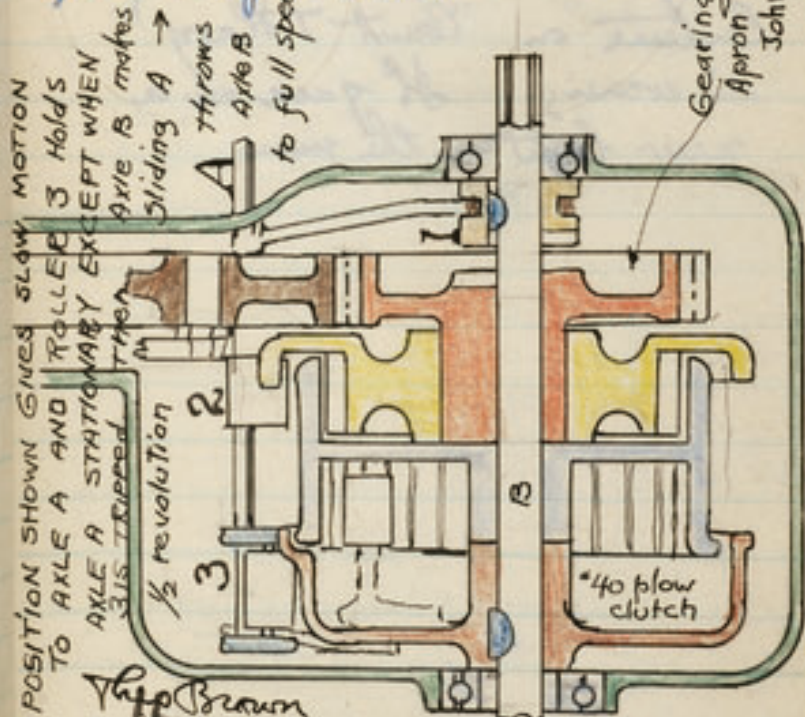 POSITION SHOWN GIVES SLOW MOTION
TO AXLE A AND ROLLER 3 Holds
AXLE A STATIONARY EXCEPT WHEN
3 IS TRIPPED THEN Axle B makes
½ revolution
Sliding A →
throws
Axle B
to full
A
1
2
3
B
Gearing
Apron
John
*40 plow
clutch
Brown